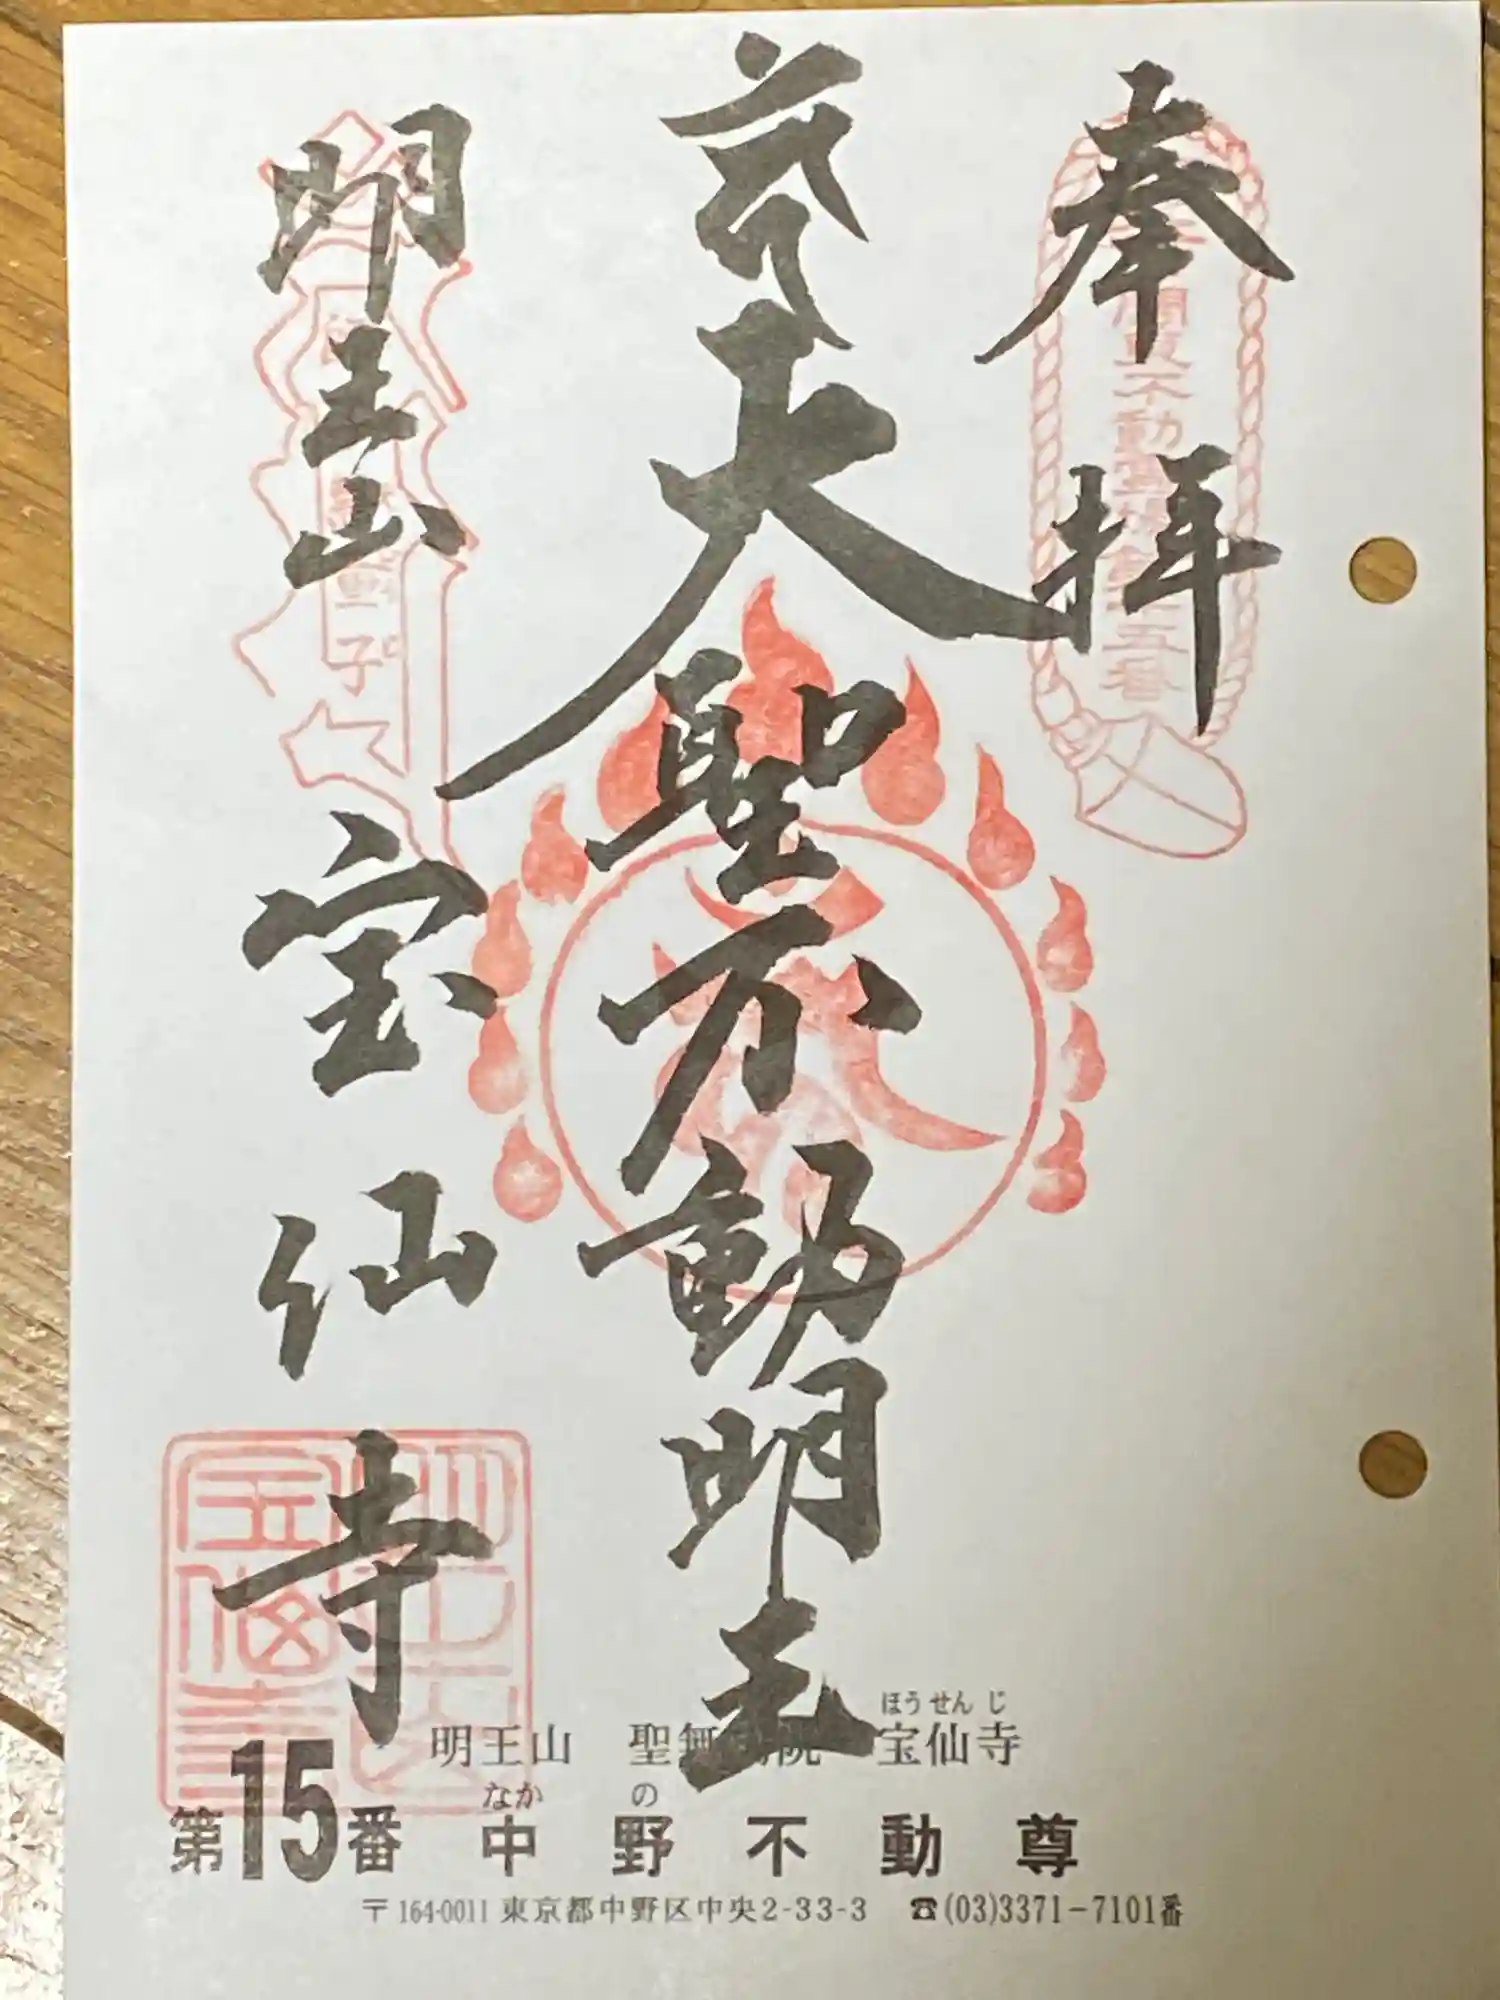 奉拝
大聖不動明王
明王山
宝仙寺
関東不動霊場第十五番
ほうせんじ
明王山 聖無動院 宝仙寺
なかの
第15番 中野不動尊
〒164-0011 東京都中野区中央2-33-3 ☎(03)3371-7101番